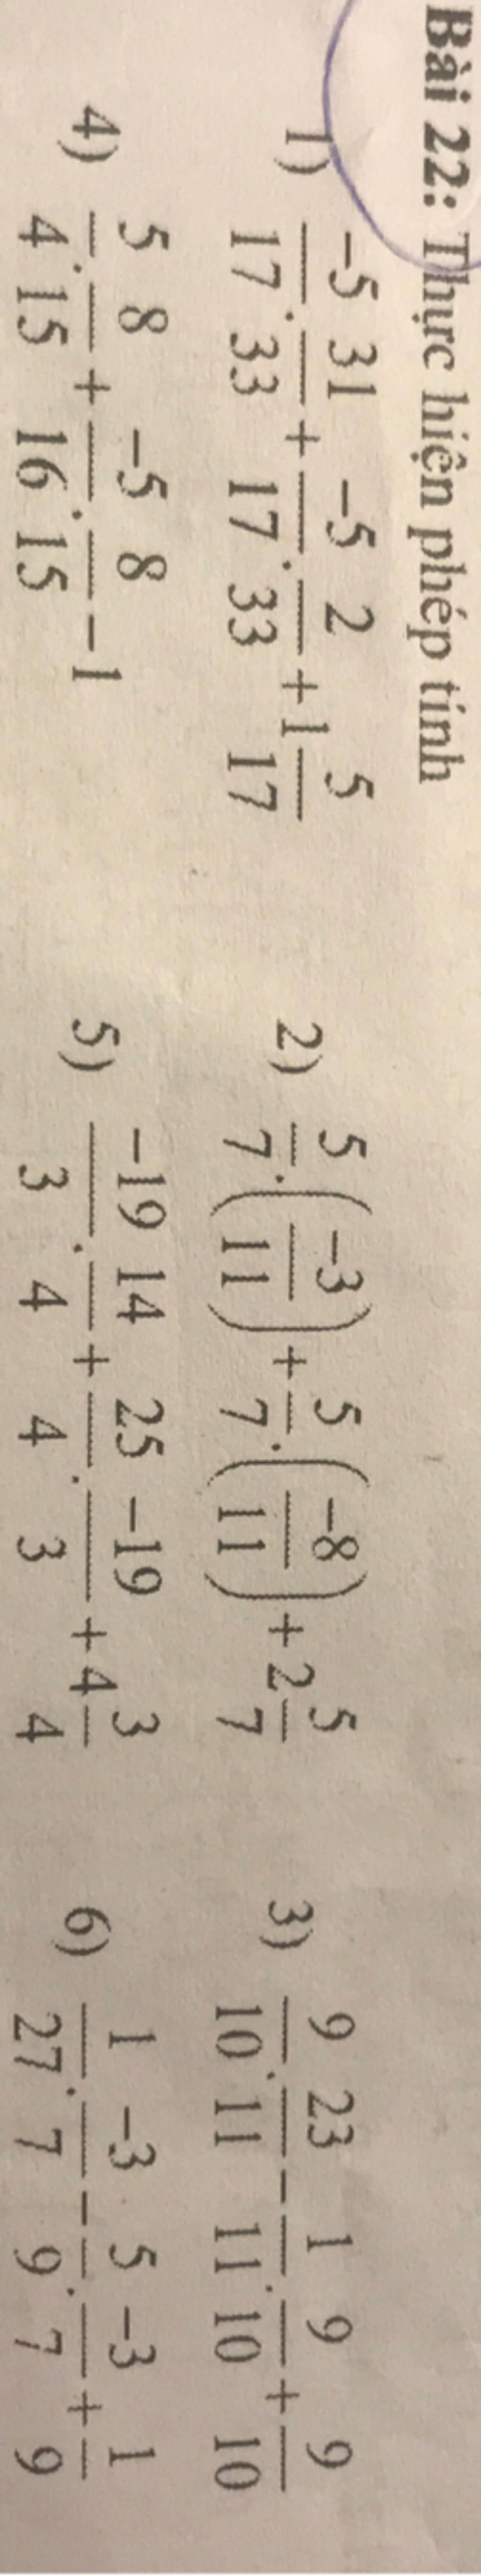 Bài 22: Thực hiện phép tính
1) \frac{-5}{17}.\frac{31}{33}+\frac{-5}{17}.\frac{2}{33}+1\frac{5}{17}
2) \frac{5}{7}.\left(\frac{-3}{11}\right)+\frac{5}{7}.\left(\frac{-8}{11}\right)+2\frac{5}{7}
3) \frac{9}{10}.\frac{23}{11}-\frac{1}{11}.\frac{9}{10}+\frac{9}{10}
4) \frac{5}{4}.\frac{8}{15}+\frac{-5}{16}.\frac{8}{15}-1
5) \frac{-19}{3}.\frac{14}{4}+\frac{25}{4}.\frac{-19}{3}+4\frac{3}{4}
6) \frac{1}{27}.\frac{-3}{7}-\frac{5}{9}.\frac{-3}{7}+\frac{1}{9}